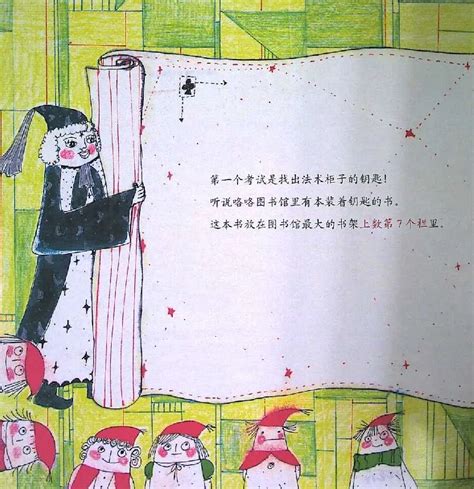 第一个考试是找出法术柜子的钥匙!
听说咯咯图书馆里有本装着钥匙的书。
这本书放在图书馆最大的书架上数第7个栏里。